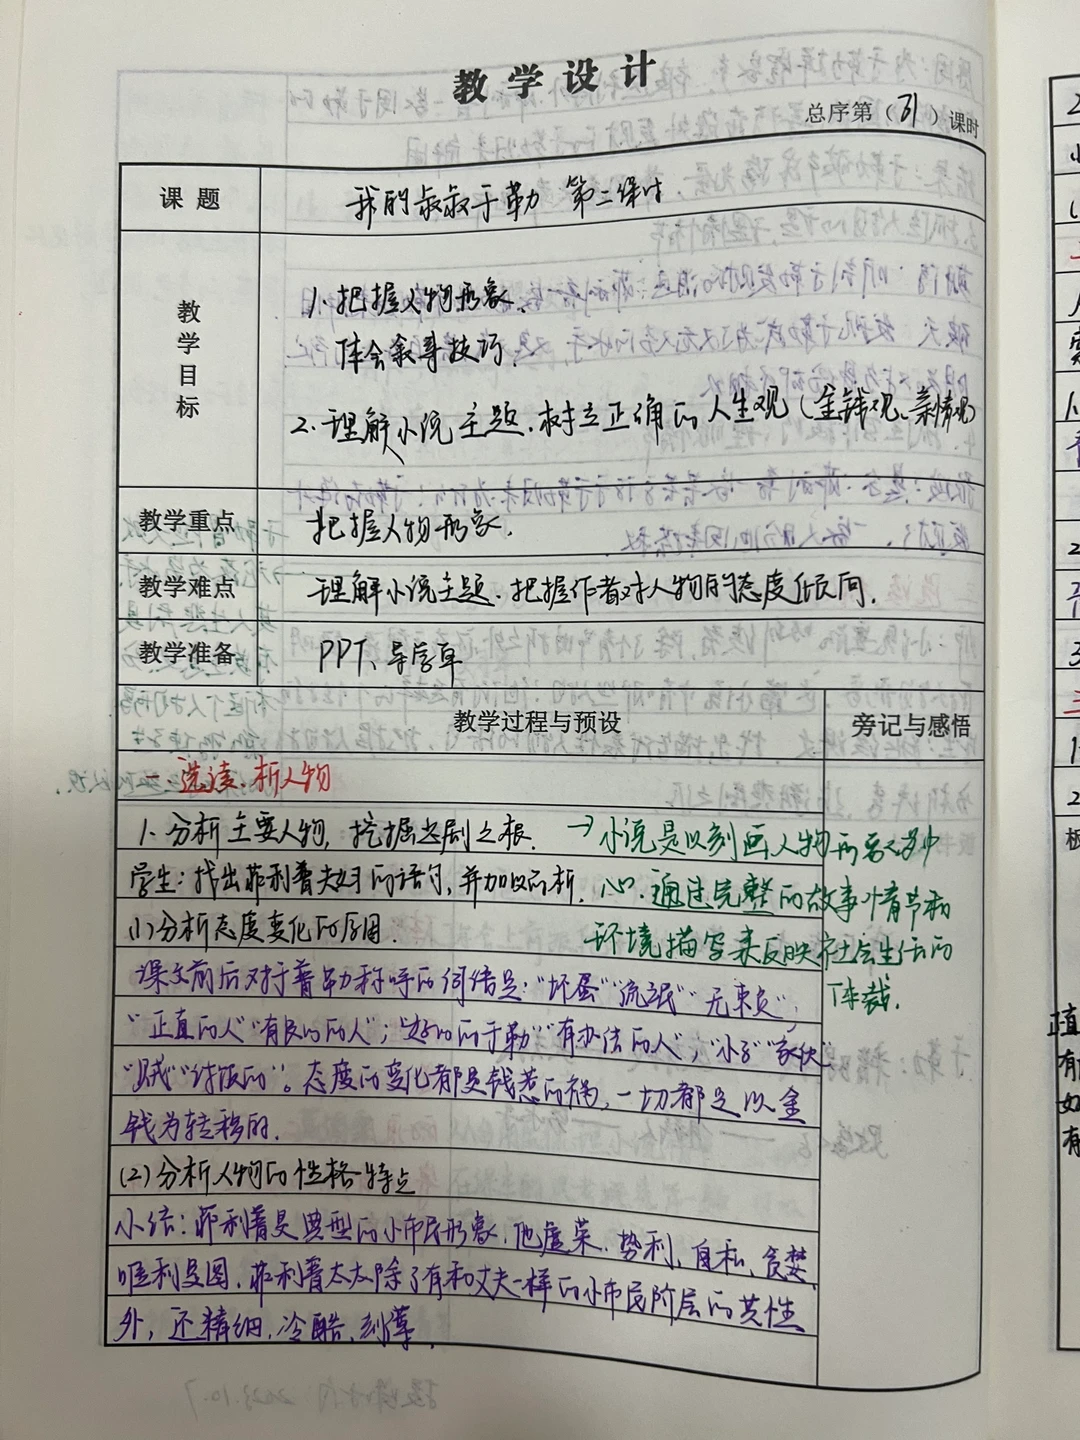 教学设计
总序第（31）课时
课题 我的叔叔于勒 第二课时
教学目标
1. 把握人物形象，
体会叙事技巧，
2. 理解小说主题，树立正确的人生观（金钱观、亲情观）
教学重点 把握人物形象，
教学难点 理解小说主题，把握作者对人物的态度倾向，
教学准备 PPT、导学单
教学过程与预设 旁记与感悟
一、选读，析人物
1. 分析主要人物，挖掘悲剧之根．
学生：找出菲利普夫妇的语句，并加以分析．
(1) 分析态度变化的原因．
课文前后对于勒称呼的
是："坏蛋""流氓""无赖"；
"正直的人""有良心的人"；"好心的于勒""有办法的人"；"小子""家伙"
"贼""讨饭的"。态度的变化都是钱惹的祸，一切都是以金
钱为转移的．
(2) 分析人物的性格特点
小结：菲利普是典型的小市民形象，他虚荣、势利、自私、贪婪，
唯利是图．菲利普太太除了有和丈夫一样的小市民阶层的共性
外，还精细，冷酷，刻薄．
→小说是以刻画人物形象为中
心，通过完整的故事情节和
环境描写来反映社会生活的
体裁．